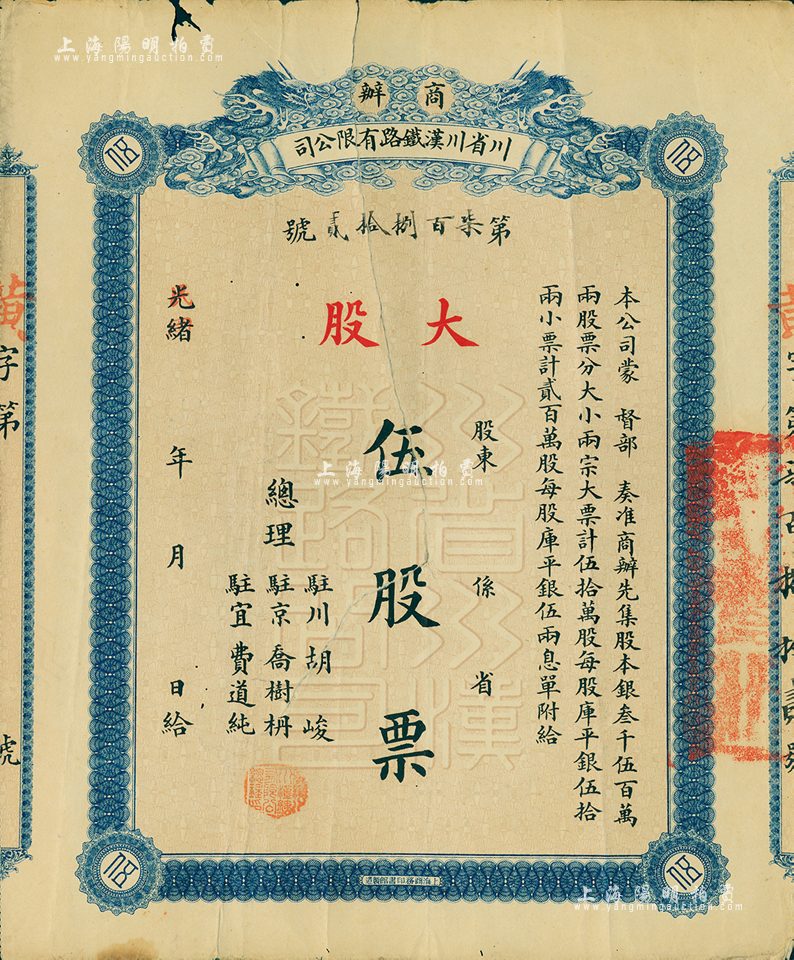 上海陽明拍賣
www.yangmingauction.com
商辦
川省川漢鐵路有限公司
第柒百捌拾貳號
大股
本公司蒙 督部 奏准商辦先集股本銀叁千伍百萬
兩股票分大小兩宗大票計伍拾萬股每股庫平銀伍拾
兩小票計貳百萬股每股庫平銀伍兩息單附給
股東 係 省
伍股票
總理
駐川胡峻
駐京喬樹枏
駐宜費道純
光緒 年 月 日給
川省川漢
鐵路公司
黃
字第
號
黃字第 百捌拾貳號
上海陽明拍賣
www.yangmingauction.com
上海商務印書館製造
上海陽明拍賣
www.yangmingauction.com